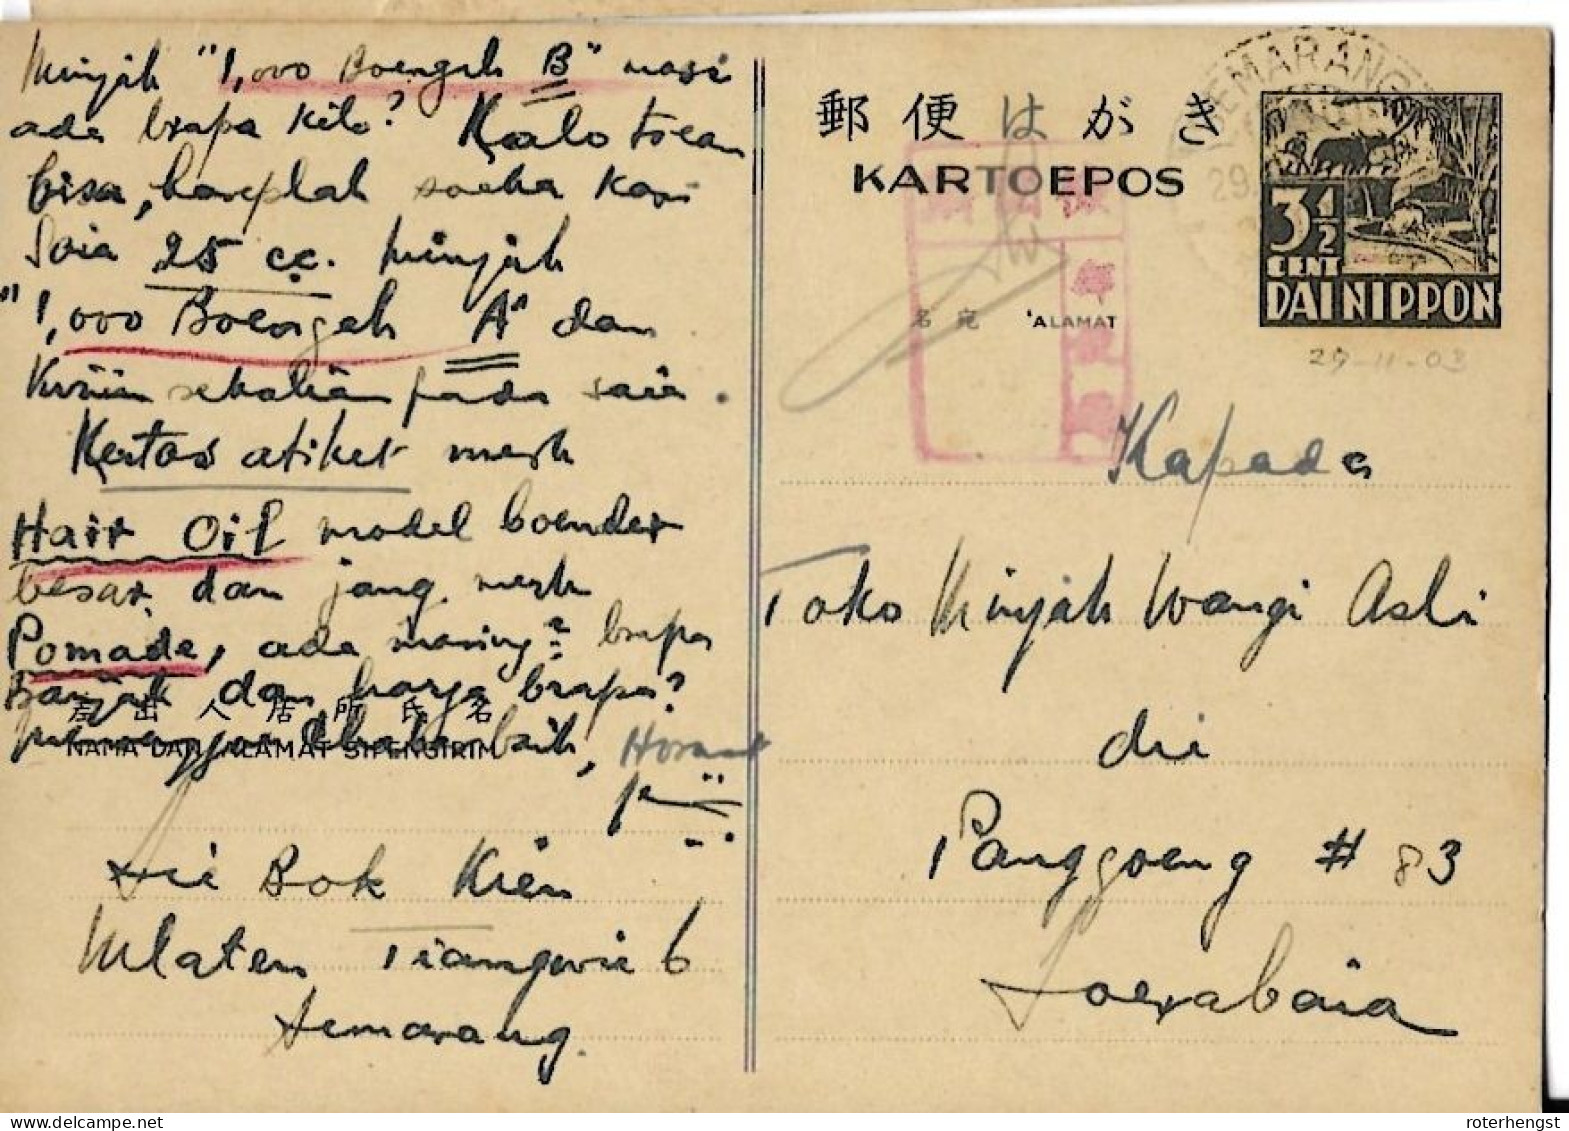 Minjak "1,000 Boengah B" masi
ada brapa kilo? Kalo toean
bisa, hareplah soeka kasi
saia 25 cc. Minjak
"1,000 Boengah A" dan
Kirim sekalian pada saia.
Kertas etiket merk
Hair Oil model boender
besar dan jang merk
Pomade, ada maing? brapa
Banjak dan harga brapa?
差 出 人 居 所 氏 名
NAMA DAN 'ALAMAT SIPENGIRIM
Hormat
Bok Kien
Mlaten Tiangwie 6
Semarang.
郵便はがき
KARTOEPOS
SEMARANG
29
3½
CENT
DAI NIPPON
29-11-03
名宛 'ALAMAT
Kapada
Toko Minjak Wangi Asli
di
Panggoeng # 83
Soerabaia
roterhengst